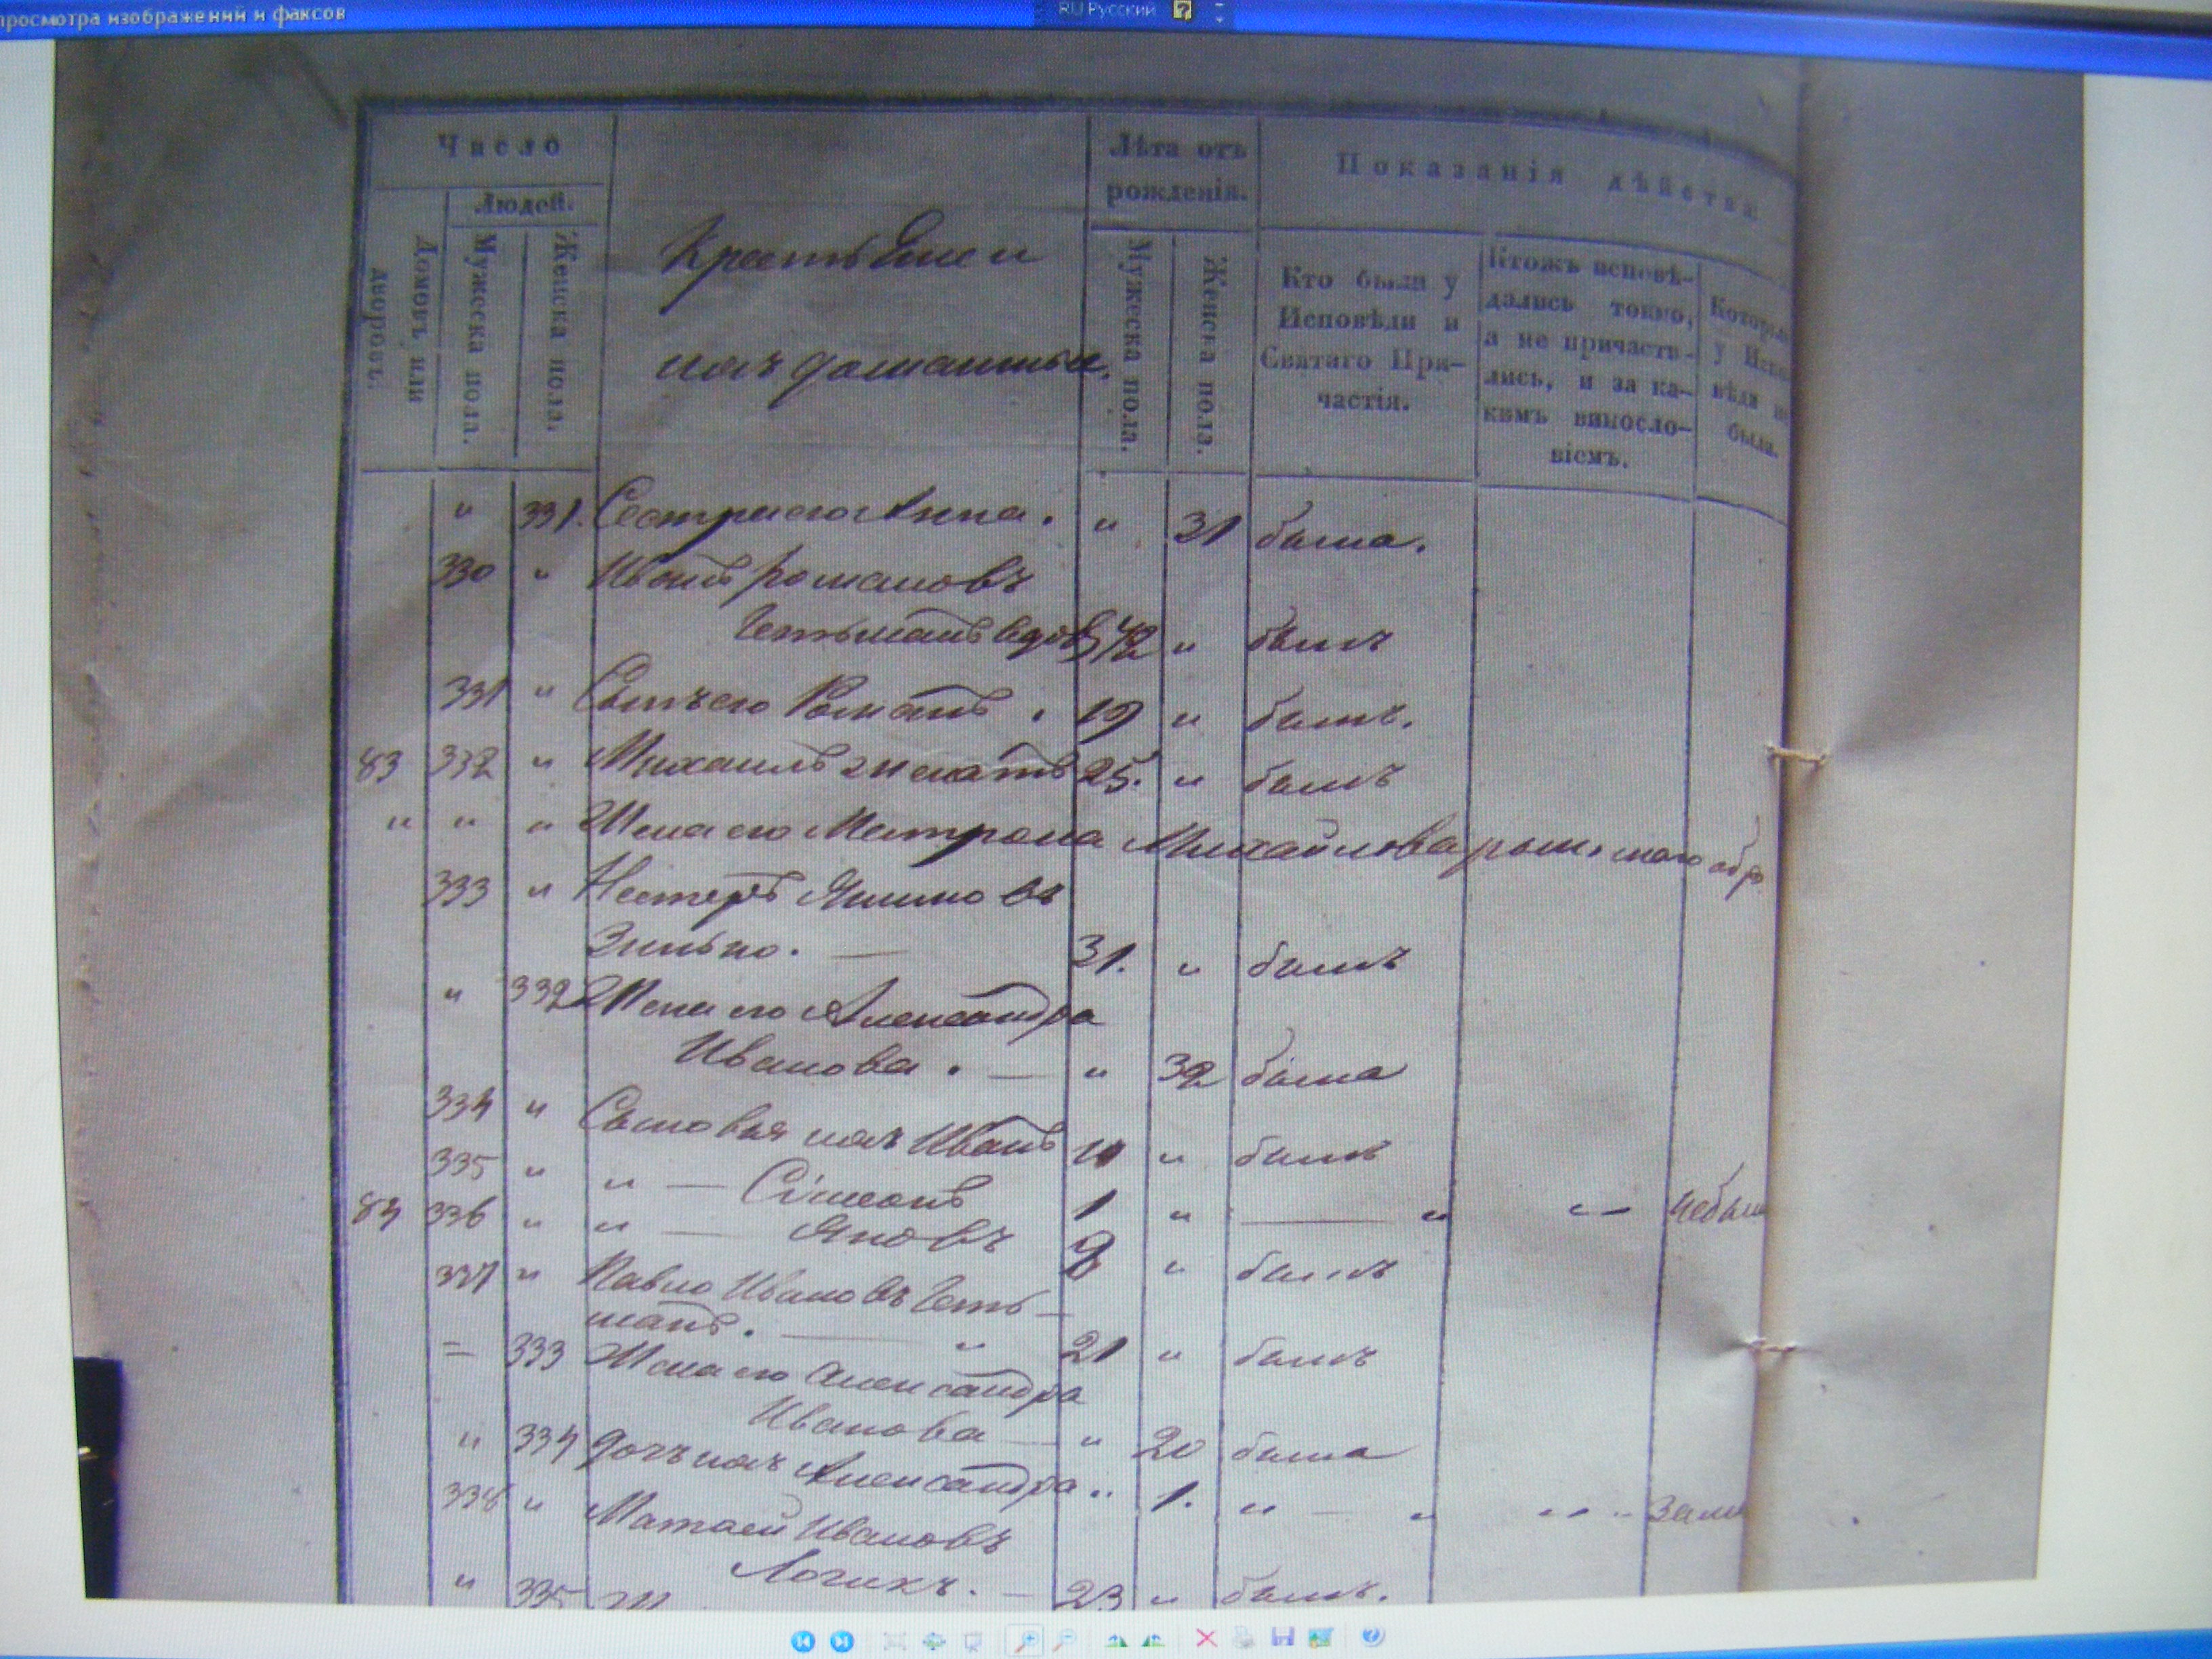 просмотра изображений и факсов
RU Русский
Число
Лѣта отъ рожденія.
Показанія дѣйства
Людей.
Домовъ или дворовъ.
Мужеска пола.
Женска пола.
Крестьяне и
ихъ домашныя.
Мужеска пола.
Женска пола.
Кто были у Исповѣди и Святаго Причастія.
Ктожъ исповѣ-
дались токмо,
а не причасти-
лись, и за ка-
кимъ винословіемъ.
" 331. Сестра его Анна. " 31 была.
330 " Иванъ Романовъ
Гетьманъ вдовъ 42 " былъ
331 " Сынъ его Романъ. 19 " былъ.
83 332 " Михаилъ 25. " былъ
" " " Жена его Матрона Михайлова рим.
333 " Нестеръ Яковъ
Зинько. — 31. " былъ
" 332 Жена его Александра
Иванова. — " 32 была
334 " Сыновья ихъ Иванъ 10 " былъ
335 " " — Сімеонъ 1 " — " " — небыл
84 336 " " — Яковъ 8 " былъ
337 " Павло Ивановъ Геть-
манъ. — " 21 " былъ
= 333 Жена его Александра
Иванова — " 20 была
" 334 Дочь ихъ Александра " 1. " — "
338 " Матвей Ивановъ
Логихъ. — 23 " былъ.
" 335